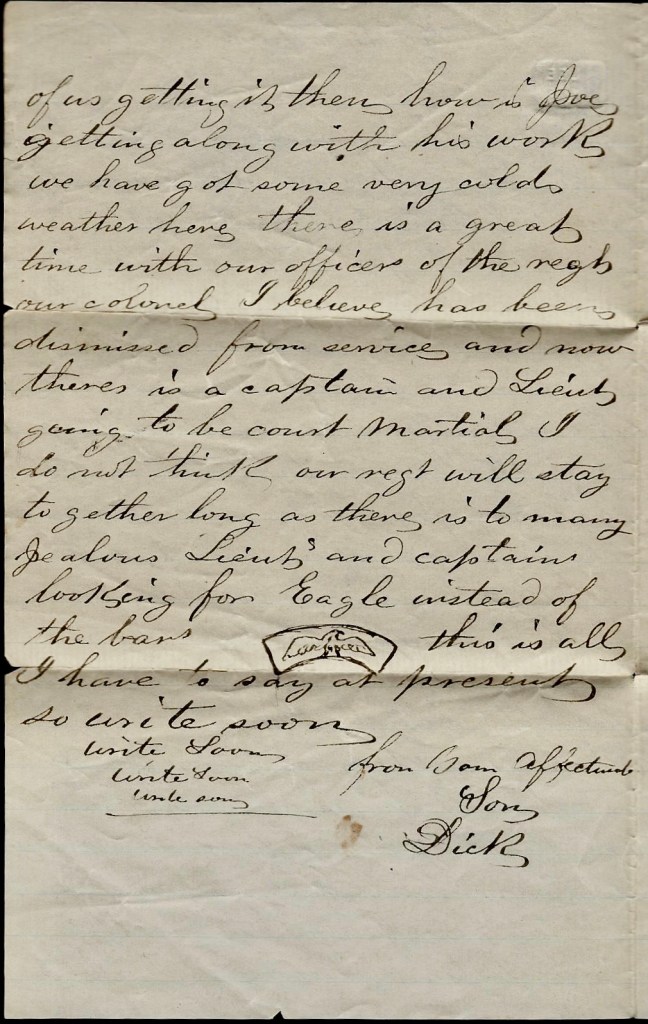 of us getting it then how is Joe
getting along with his work
we have got some very cold
weather here there is a great
time with our officers of the regt
our colonel I believe has been
dismissed from service and now
theres is a captain and Lieut
going to be court Martial I
do not think our regt will stay
to gether long as there is to many
Jealous Lieuts and captains
looking for Eagle instead of
the bars this is all
I have to say at present
so write soon
write Soon
write Soon
write soon
from affectunate
Son
Dick